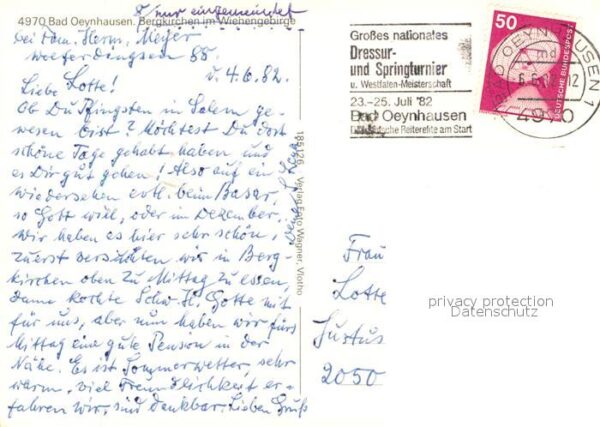 nur eingemeindet
4970 Bad Oeynhausen. Bergkirchen im Wiehengebirge
bei Fam. Herm. Meyer
88.
d. 4.6.82.
Liebe Lotte!
Ob Du Pfingsten in Salem ge-
wesen bist? Möchtest Du dort
schöne Tage gehabt haben und
es Dir gut gehen! Also auf ein
Wiedersehen evtl. beim Basar,
so Gott will, oder im Dezember.
Wir haben es hier sehr schön,
zuerst versuchten wir in Berg-
kirchen oben zu Mittag zu essen,
dann kochte Schw. H. Gotte mit
für uns, aber nun haben wir fürs
Mittag eine gute Pension in der
Nähe. Es ist Sommerwetter, sehr
warm. Viel Freundlichkeit er-
fahren wir, sind dankbar. Lieben Gruß
185126 Verlag Foto Wagner, Vlotho
Großes nationales
Dressur-
und Springturnier
u. Westfalen-Meisterschaft
23.-25. Juli '82
Bad Oeynhausen
Deutsche Reiterelite am Start
50
DEUTSCHE BUNDESPOST
BAD OEYNHAUSEN 1
md
4970
Frau
Lotte
Justus
2050
privacy protection
Datenschutz